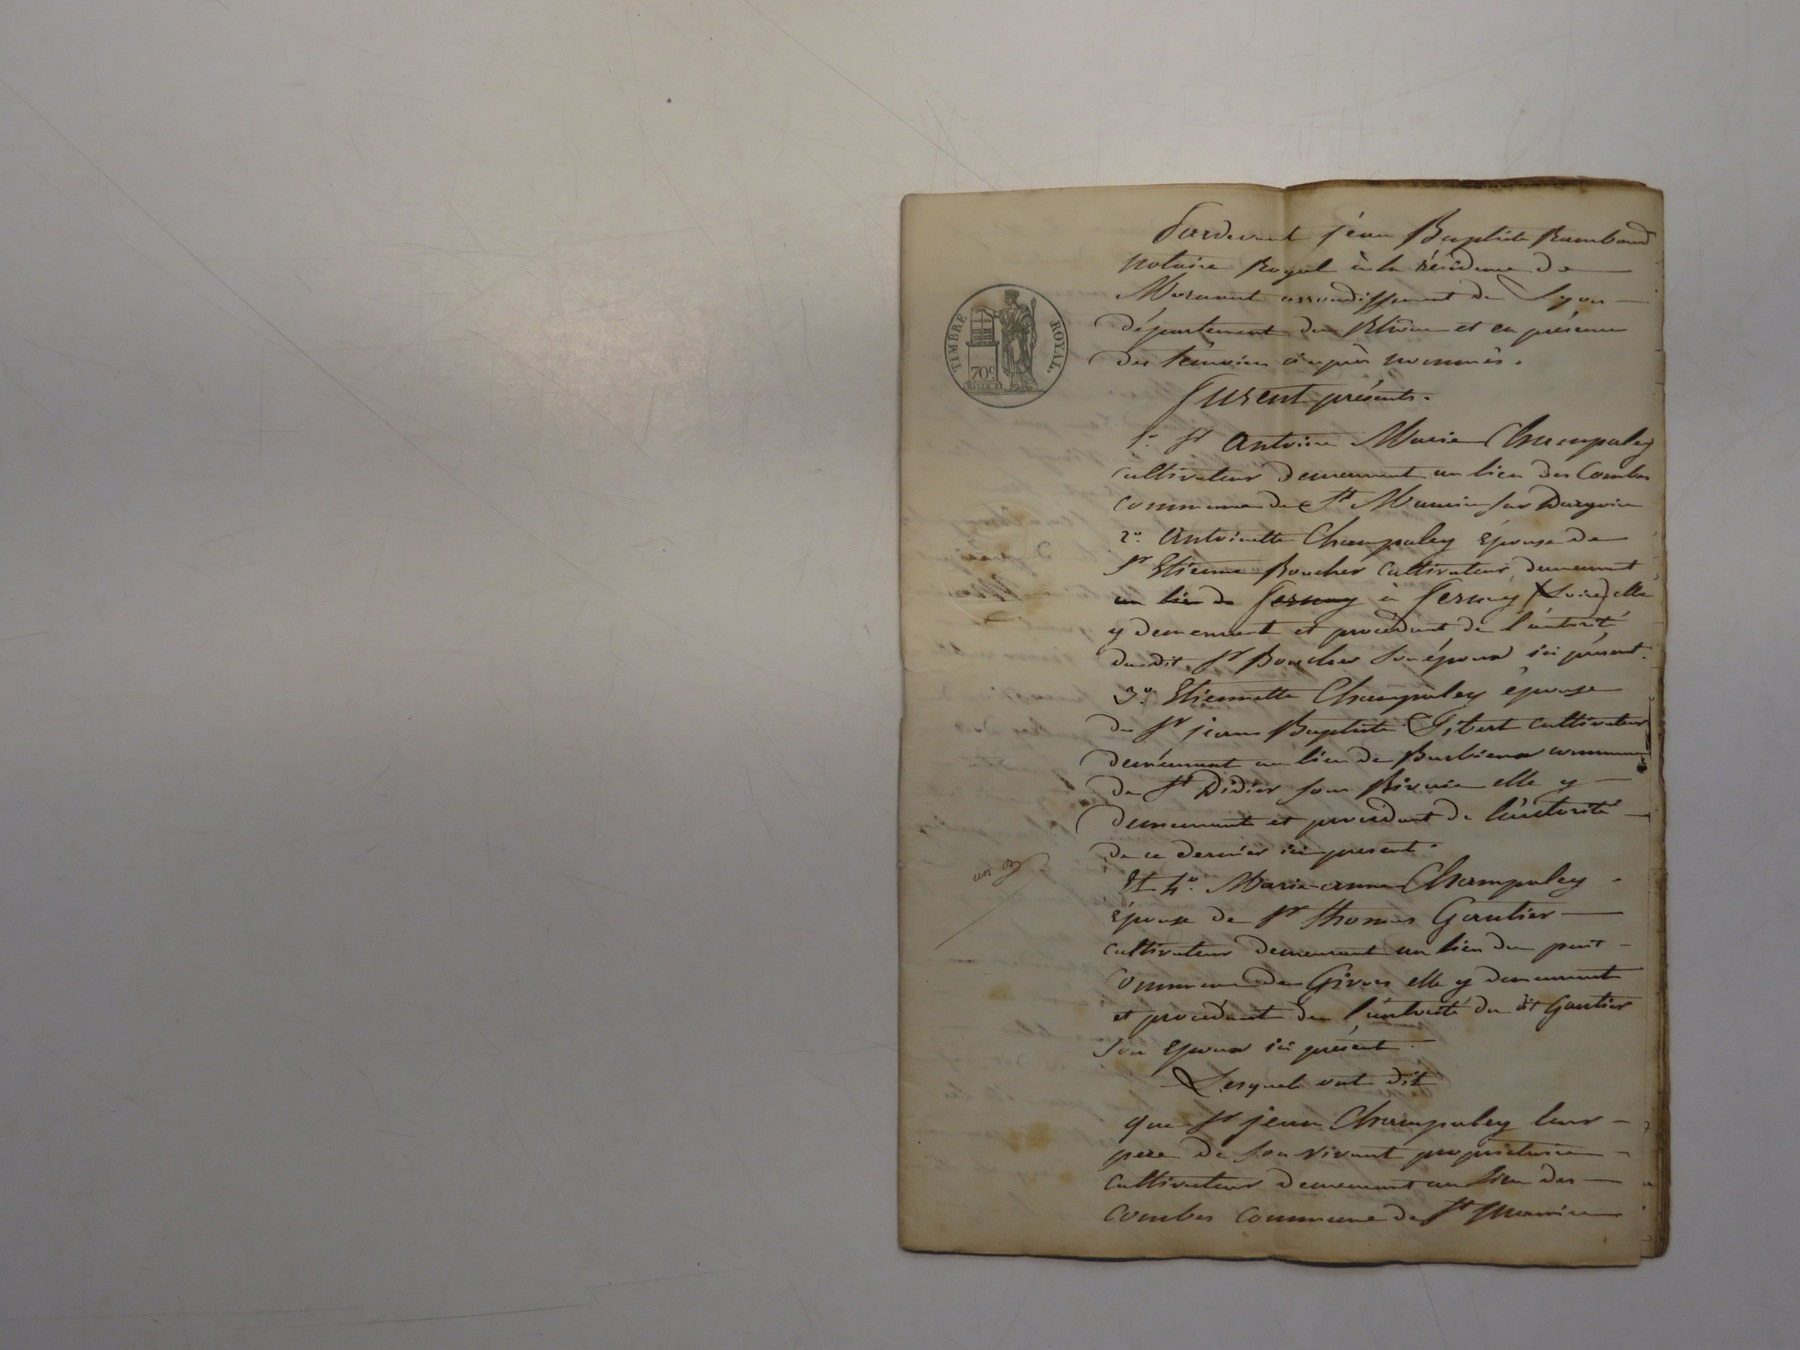 Pardevant jéan Baptiste Rambaud
Notaire Royal à la résidence de
Mornant arrondissement de Lyon
département du Rhône et en présence
des témoins ciaprès nommés.
furent présents.
TIMBRE ROYAL.
70c
1o. Sr Antoine Marie Champaley
cultivateur demeurant au lieu des Combes
commune de St Maurice sur Dargoire
2o. Antoinette Champaley épouse de
Sr Etienne Boucher cultivateur, demeurant
au lieu de à (Loire) elle
y demeurant et procédant de l'autorité
dudit Sr Boucher son époux ici présent.
3o. Etiennette Champaley épouse
de Sr jean Baptiste Gibert cultivateur
demeurant au lieu de commune
de St Didier sous Riverie elle y
demeurant et procédant de l'autorité
de ce dernier ici présent.
un
Et 4o. Marie anne Champaley
épouse de Sr thomas Gautier
cultivateur demeurant au lieu du pont
commune de Givors elle y demeurant
et procédant de l'autorité du dt Gautier
son époux ici présent
Lesquels ont dit
que Sr jean Champaley leur
pere de son vivant propriétaire
cultivateur demeurant au lieu des
combes commune de St Maurice